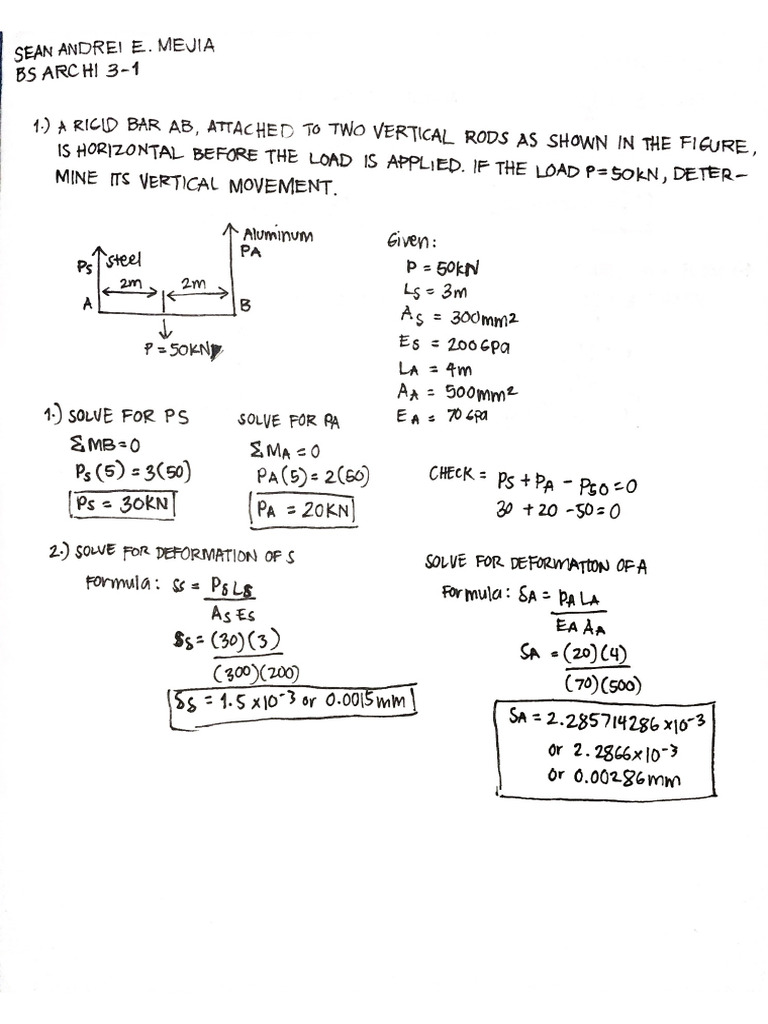 SEAN ANDREI E. MEJIA
BS ARCHI 3-1
1.) A RIGID BAR AB, ATTACHED TO TWO VERTICAL RODS AS SHOWN IN THE FIGURE,
IS HORIZONTAL BEFORE THE LOAD IS APPLIED. IF THE LOAD P=50KN, DETER-
MINE ITS VERTICAL MOVEMENT.
Ps Steel
Aluminum
PA
2m 2m
A B
P = 50KN
Given:
P = 50KN
Ls = 3m
As = 300mm2
Es = 200Gpa
LA = 4m
AA = 500mm2
EA = 70Gpa
1.) SOLVE FOR PS
ΣMB=0
Ps(5) = 3(50)
Ps = 30KN
SOLVE FOR PA
ΣMA = 0
PA(5) = 2(50)
PA = 20KN
CHECK = Ps + PA - P50 = 0
30 + 20 - 50 = 0
2.) SOLVE FOR DEFORMATION OF S
Formula: δs = PsLs
AsEs
δs = (30)(3)
(300)(200)
δs = 1.5 x10-3 or 0.0015mm
SOLVE FOR DEFORMATION OF A
Formula: δA = PALA
EAAA
δA = (20)(4)
(70)(500)
δA = 2.285714286 x10-3
or 2.2866x10-3
or 0.00286mm